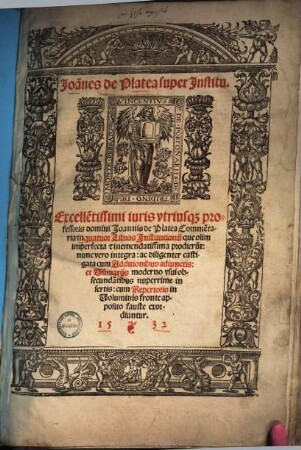 Joānes de Platea super Institu.
VINCENTIVS
Excellētissimi iuris vtriusqꝫ pro-
fessoris domini Joannis de Platea Commēta-
ria in quatuor Libros Institutionū que olim
imperfecta ⁊ inemendatissima prodierūt:
nunc vero integra: ac diligenter casti-
gata cum Additionibus adiunctis:
et Sūmarijs moderno vsui ob-
secundātibus nuperrime in
sertis: cum Repertorio in
Uoluminis fronte ap-
posito fauste exor-
diuntur.
15 32